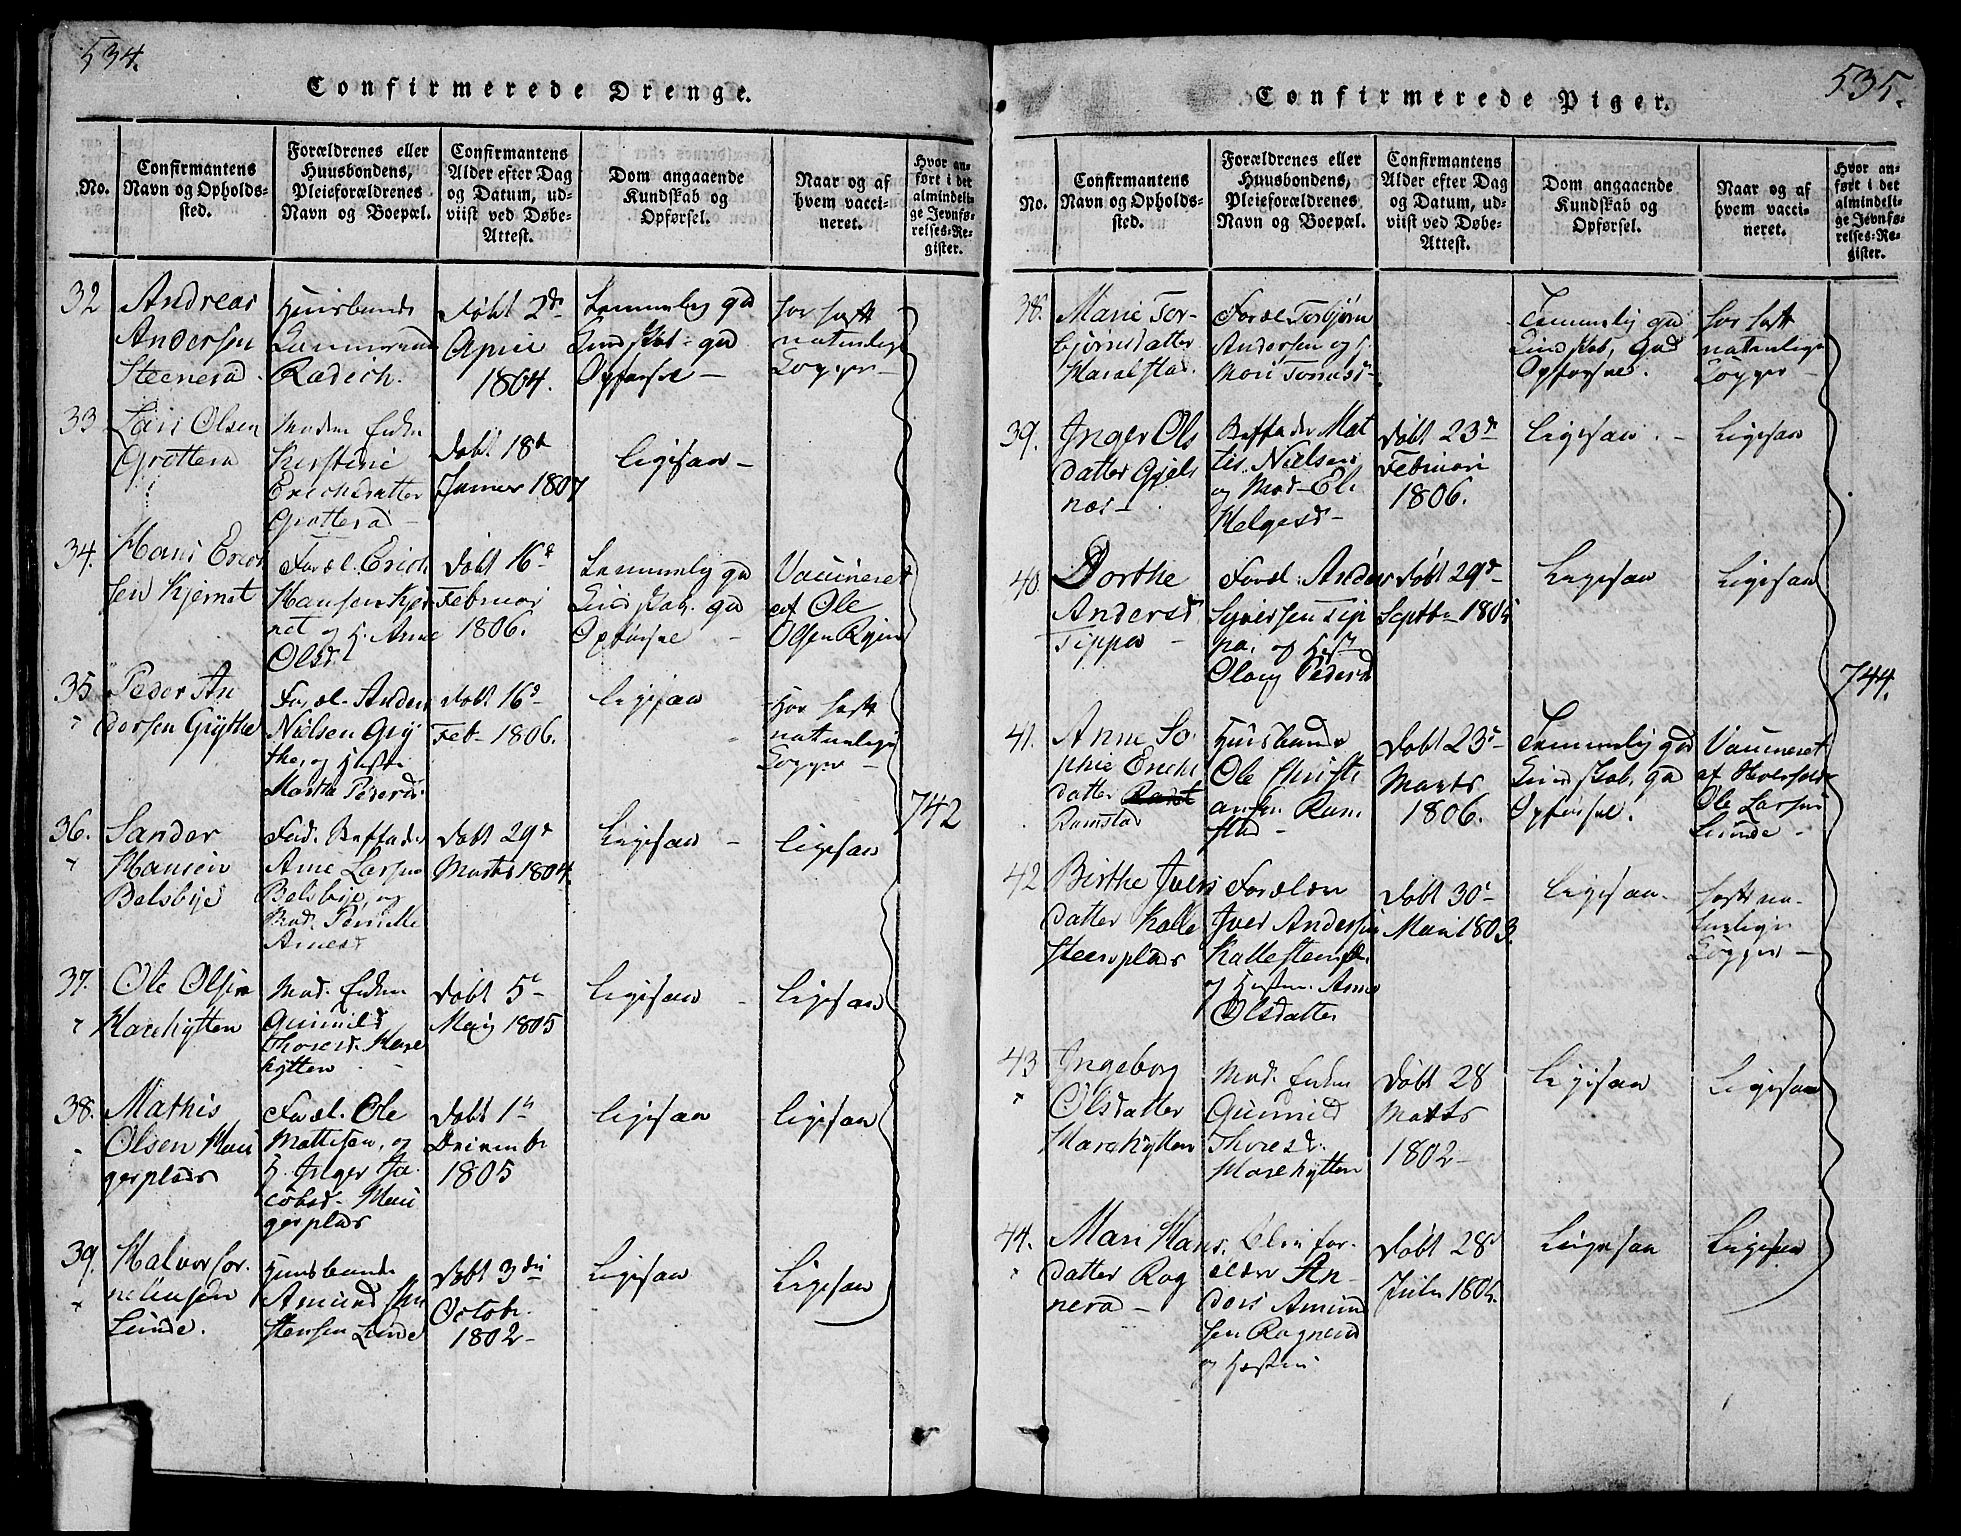 534.
Confirmerede Drenge.
No.
Confirmantens
Navn og Opholds-
sted.
Forældrenes eller
Huusbondens,
Pleieforældrenes
Navn og Boepæl.
Confirmantens
Alder efter Dag
og Datum, ud-
viist ved Døbe-
Attest.
Dom angaaende
Kundskab og
Opførsel.
Naar og af
hvem vacci-
neret.
Hvor an-
ført i det
almindeli-
ge Jevnfø-
relses-Re-
gister.
32
Andreas
Andersen
Steenerad
Huusbonde
Radich.
Født 2de
April
1804.
Temmelig god
Kundskab- god
Opførsel –
har havt
naturlige
Kopper –
33
Lars Olsen
Grotterø
Moder Enke
Kerstine
Erichsdatter
Døbt 18d
Januar 1807
Ligesaa –
34.
Hans Erich
sen Kjernet
Foræl. Erich
Hansen Kjer
net og H. Anne
Olsd
Døbt 16d
Februar
1806.
Temmelig god
Kundskab. god
Opførsel –
Vaccineret
af Ole
Olsen
35
Peder An
dersen Grythe
Foræl. Anders
Nielsen Gry
the, og Hustr
Martha Pedersd.
Døbt 16d
Feb– 1806.
Ligesaa
Har havt
naturlige
Kopper –
36.
Sander
Hansen
Belsbye
Arne Larsen
Belsbye, og
Mod. Pernille
Arnesd
Døbt 29d
Marts 1804.
Ligesaa –
Ligesaa
742
37.
Ole Olsen
Harehytten
Mod. Enken
Gunnild
Thoresd. Hare
hytten
Døbt 5t
Maij 1805
Ligesaa –
Ligesaa
38.
Mathis
Olsen Hau
gerplads
Foræl. Ole
Mattisen, og
H. Inger Ja
cobsd. Hau
gerplads
Døbt 1n
Decembr
1805
Ligesaa
Ligesaa
39.
Halvor Cor-
neliussen
Lunde.
Huusbonde
Amund
Lunde
Døbt 3die
Octobr.
1802–
Ligesaa
Ligesaa
535.
Confirmerede Piger.
No.
Confirmantens
Navn og Opholds-
sted.
Forældrenes eller
Huusbondens,
Pleieforældrenes
Navn og Boepæl.
Confirmantens
Alder efter Dag
og Datum, ud-
viist ved Døbe-
Attest.
Dom angaaende
Kundskab og
Opførsel.
Naar og af
hvem vacci-
neret.
Hvor an-
ført i det
almindeli-
ge Jevnfø-
relses-Re-
gister.
38.
Marie Tor-
bjørnsdatter
Foræl Torbjørn
Andersen og
Temmelig god
Kundskab, god
Opførsel.
har havt
naturlige
Kopper –
39.
Inger Ols
datter Gjels
nes –
Mat
tis. Nielsen
og Mod–
Helgesd–
Døbt 23d
Februari
1806.
Ligesaa –
Ligesaa
40.
Dorthe
Andersd
Tippa –
Foræl: Anders
Syversen Tip
pa, og Hustr
Pedersd
Døbt 29d
Septbr 1805
Ligesaa
Ligesaa
41.
Anne So
phie Erichs
datter
Ramstad
Huusbonde
Ole Christi
ansen Ram
stad –
Døbt 23d
Marts
1806.
Temmelig god
Kundskab, god
Opførsel.
Vaccineret
af
Ole Larsen
Lunde –
42
Birthe Ivers
datter Kalle
steenplads
Forælder
Iver Andersen
og Hustru. Anne
Olsdatter
Døbt 30t
Mai 1803.
Ligesaa –
havt na-
turlige
Kopper –
43
Ingeborg
Olsdatter
Harehytten
Mod. Enken
Gunnild
Thoresd.
Harehytten
Døbt 28
Marts
1802–
Ligesaa
Ligesaa
44.
Mari Hans
datter Rog
nerød –
For-
ælder An-
ders Amund
sen Rognerød
og Hustru
Døbt 28d
Ligesaa
Ligesaa
744.